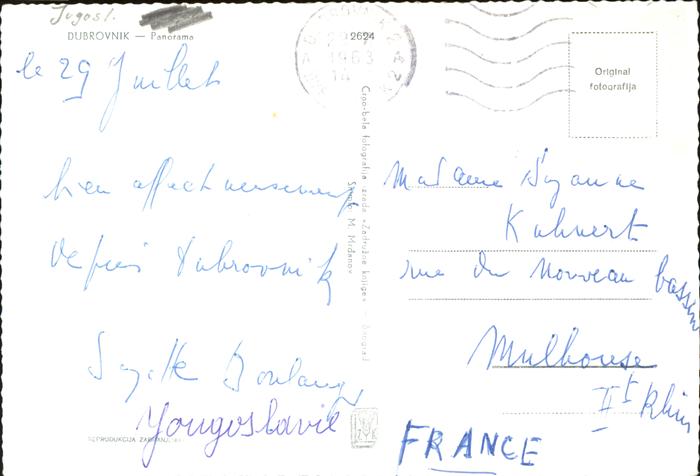 Jugosl.
DUBROVNIK — Panorama
2624
1963
le 29 Juillet
bien affectueusement
depuis Dubrovnik
Boulanger
Yougoslavie
REPRODUKCIJA
Crno-bela fotografija, izrada »Zadružne knjige« — Beograd
Snimio M. Mićanov
Original
fotografija
Madame Suzanne
Kuhnert
rue du Nouveau bassin
Mulhouse
Ht Rhin
FRANCE